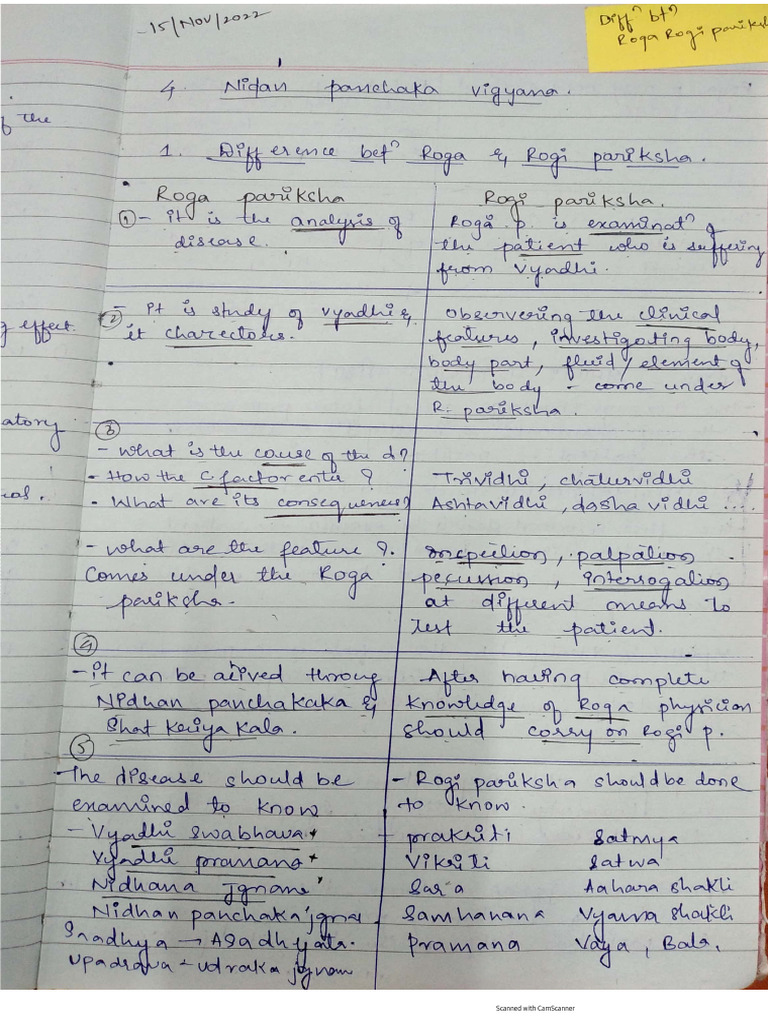 -15/Nov/2022
Diffn btn
Roga Rogi pariksh
4. Nidan panchaka vigyana.
f the
1. Difference betn Roga & Rogi pariksha.
Roga pariksha
① - it is the analysis of
disease.
② - It is study of vyadhi &
it charectors.
③
- What is the cause of the d?
- How the C factor enter ?
- What are its consequences?
- What are the feature ?.
Comes under the Roga
pariksha.
④
- it can be aeived throug
Nidhan panchakaka &
Shat Keriya Kala.
⑤
- The disease should be
examined to know
- Vyadhi swabhava
Vyadhi pramana
Nidhana jgnane
Nidhan panchaka jgna
Snadhya → Asadhyata.
upadrava - udraka jgnam
Rogi pariksha.
Roga p. is examinatn of
the patient who is suffering
from Vyadhi.
Observering the clinical
features, investigating body,
body part, fluid/element of
the body - come under
R. pariksha.
Trividhi, chaturvidhi
Ashtavidhi, dasha vidhi ....
inspection, palpation
percussion, interrogation
at different means to
test the patient.
After having complete
knowledge of Roga physician
should carry on Rogi p.
- Rogi pariksha should be done
to know.
- prakriti Satmya
Vikriti Satwa
Sara Aahara shakti
Samhanana Vyama shakti
Pramana Vaya, Bala.
g effect.
atory
cal.
Scanned with CamScanner